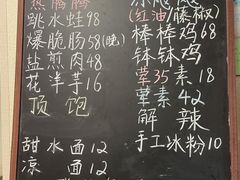 热腾腾
跳水蛙98
爆脆肠58(晚)
盐煎肉48
花芋羊16
顶饱
甜水面12
凉面12
(红油/藤椒)
棒棒鸡68
钵钵鸡
荤35素18
荤素42
解辣
手工冰粉10